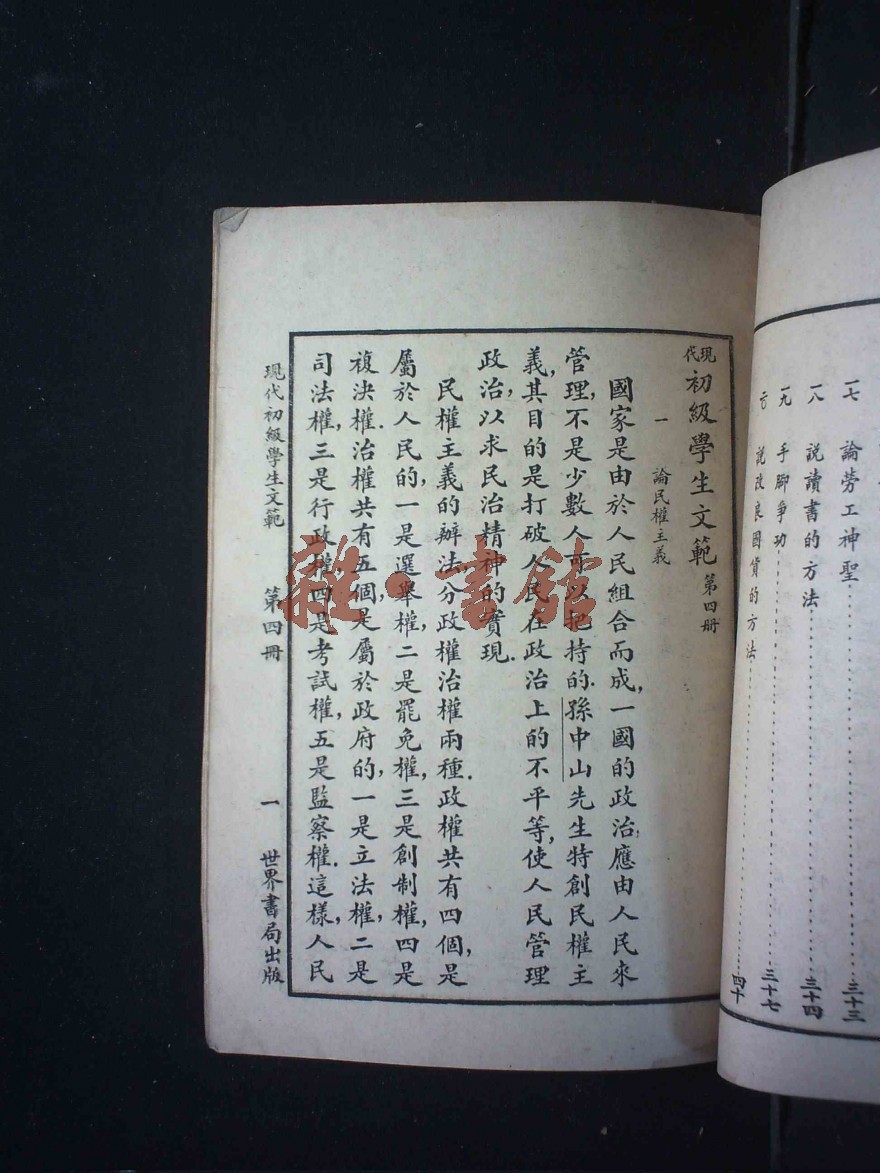 一七　論勞工神聖……三十三
一八　說讀書的方法……三十四
一九　手腳爭功……三十七
說改良國貨的方法……四十
現代初級學生文範　第四册
一　論民權主義
國家是由於人民組合而成,一國的政治,應由人民來
管理,不是少數人可以把持的.孫中山先生特創民權主
義,其目的是打破人民在政治上的不平等,使人民管理
政治,以求民治精神的實現.
民權主義的辦法,分政權治權兩種.政權共有四個,是
屬於人民的,一是選舉權,二是罷免權,三是創制權,四是
複決權.治權共有五個,是屬於政府的,一是立法權,二是
司法權,三是行政權,四是考試權,五是監察權.這樣,人民
現代初級學生文範　第四册　一　世界書局出版
雜·書館